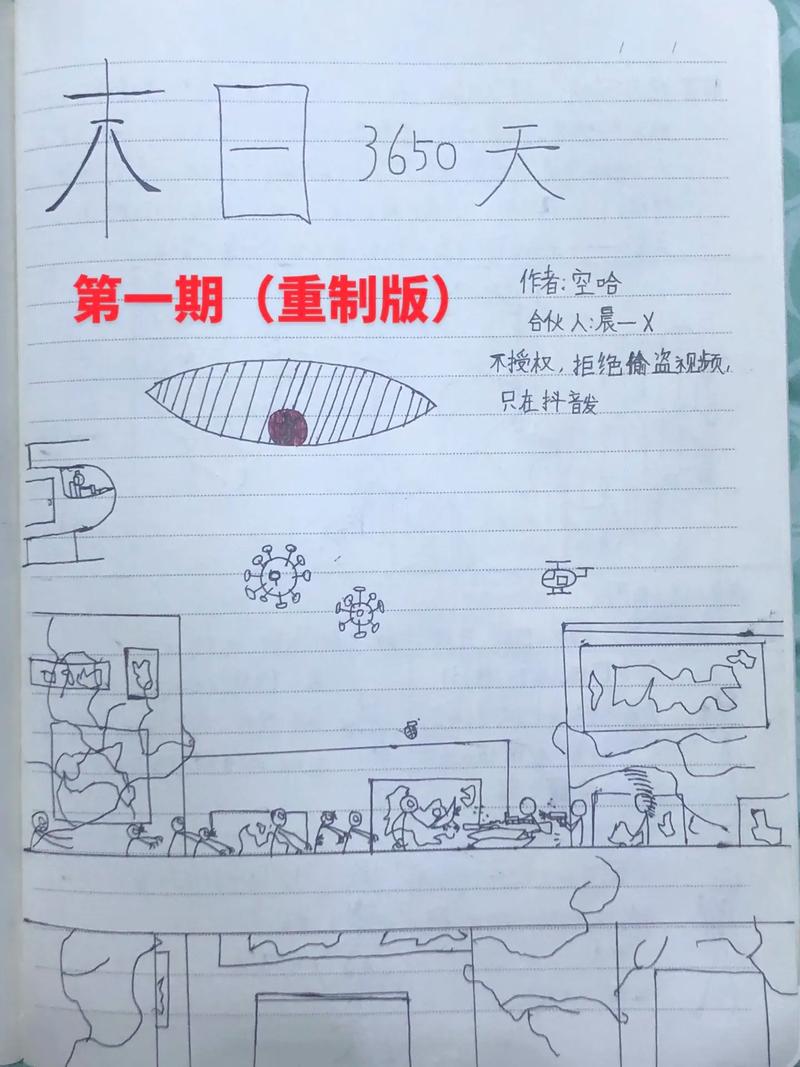 末日 3650 天
第一期（重制版）
作者:空哈
合伙人:晨一X
不授权,拒绝偷盗视频,
只在抖音发